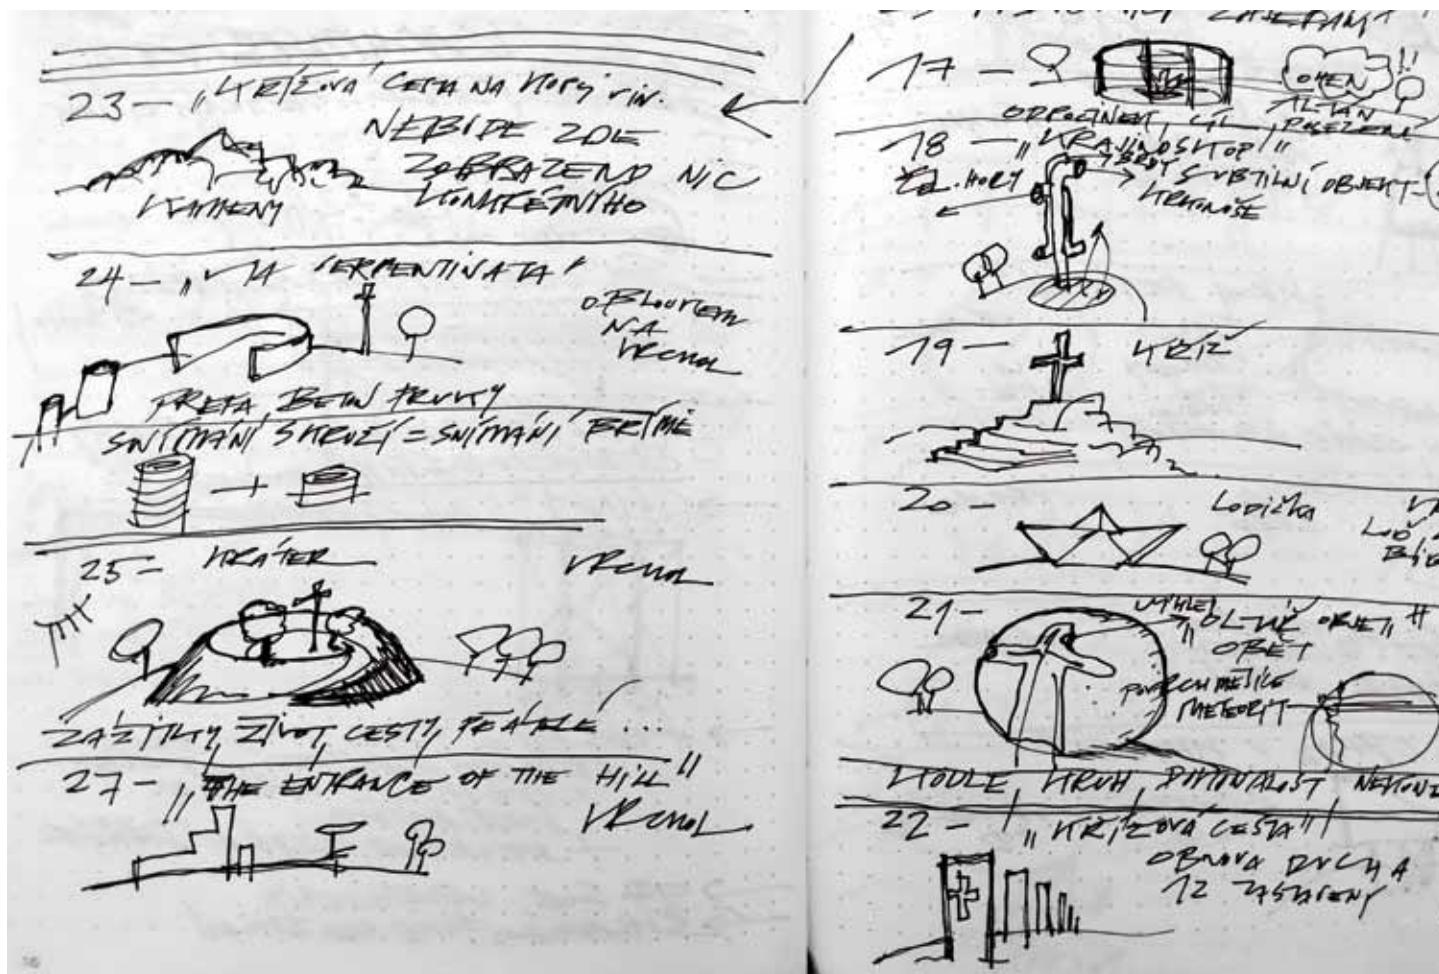 23 – „KŘÍŽOVÁ CESTA NA HORY
NEBUDE ZDE
ZOBRAZENO NIC
KONKRÉTNÍHO
KAMENY
24 – „
"SERPENTINATA"
OBLOUKEM
NA
VRCHOL
PREFA, BETON PRVKY
SNÍMÁNÍ SKRUŽÍ = SNÍMÁNÍ BŘÍMĚ
25 – KRÁTER
VRCHOL
ZÁŽITKY, ŽIVOT, CESTY, PŘÁTELÉ ...
27 – „THE ENTRANCE OF THE HILL"
VRCHOL
17 –
OHEN !!
ALTÁN
ODPOČINEK, CÍL, POSEZENÍ
18 – „KRAJINOSKOP"
BRDY SUBTILNÍ OBJEKT –
. HORY
KRKONOŠE
19 – KŘÍŽ
20 – LODIČKA
LOĎ
21 –
VÝHLED
„OLTÁŘ OBJETÍ"
OBĚT
POVRCH MĚSÍCE
METEORIT
KOULE, KRUH, DOKONALOST
22 – „KŘÍŽOVÁ CESTA"
OBNOVA DUCHA
12 ZASTAVENÍ